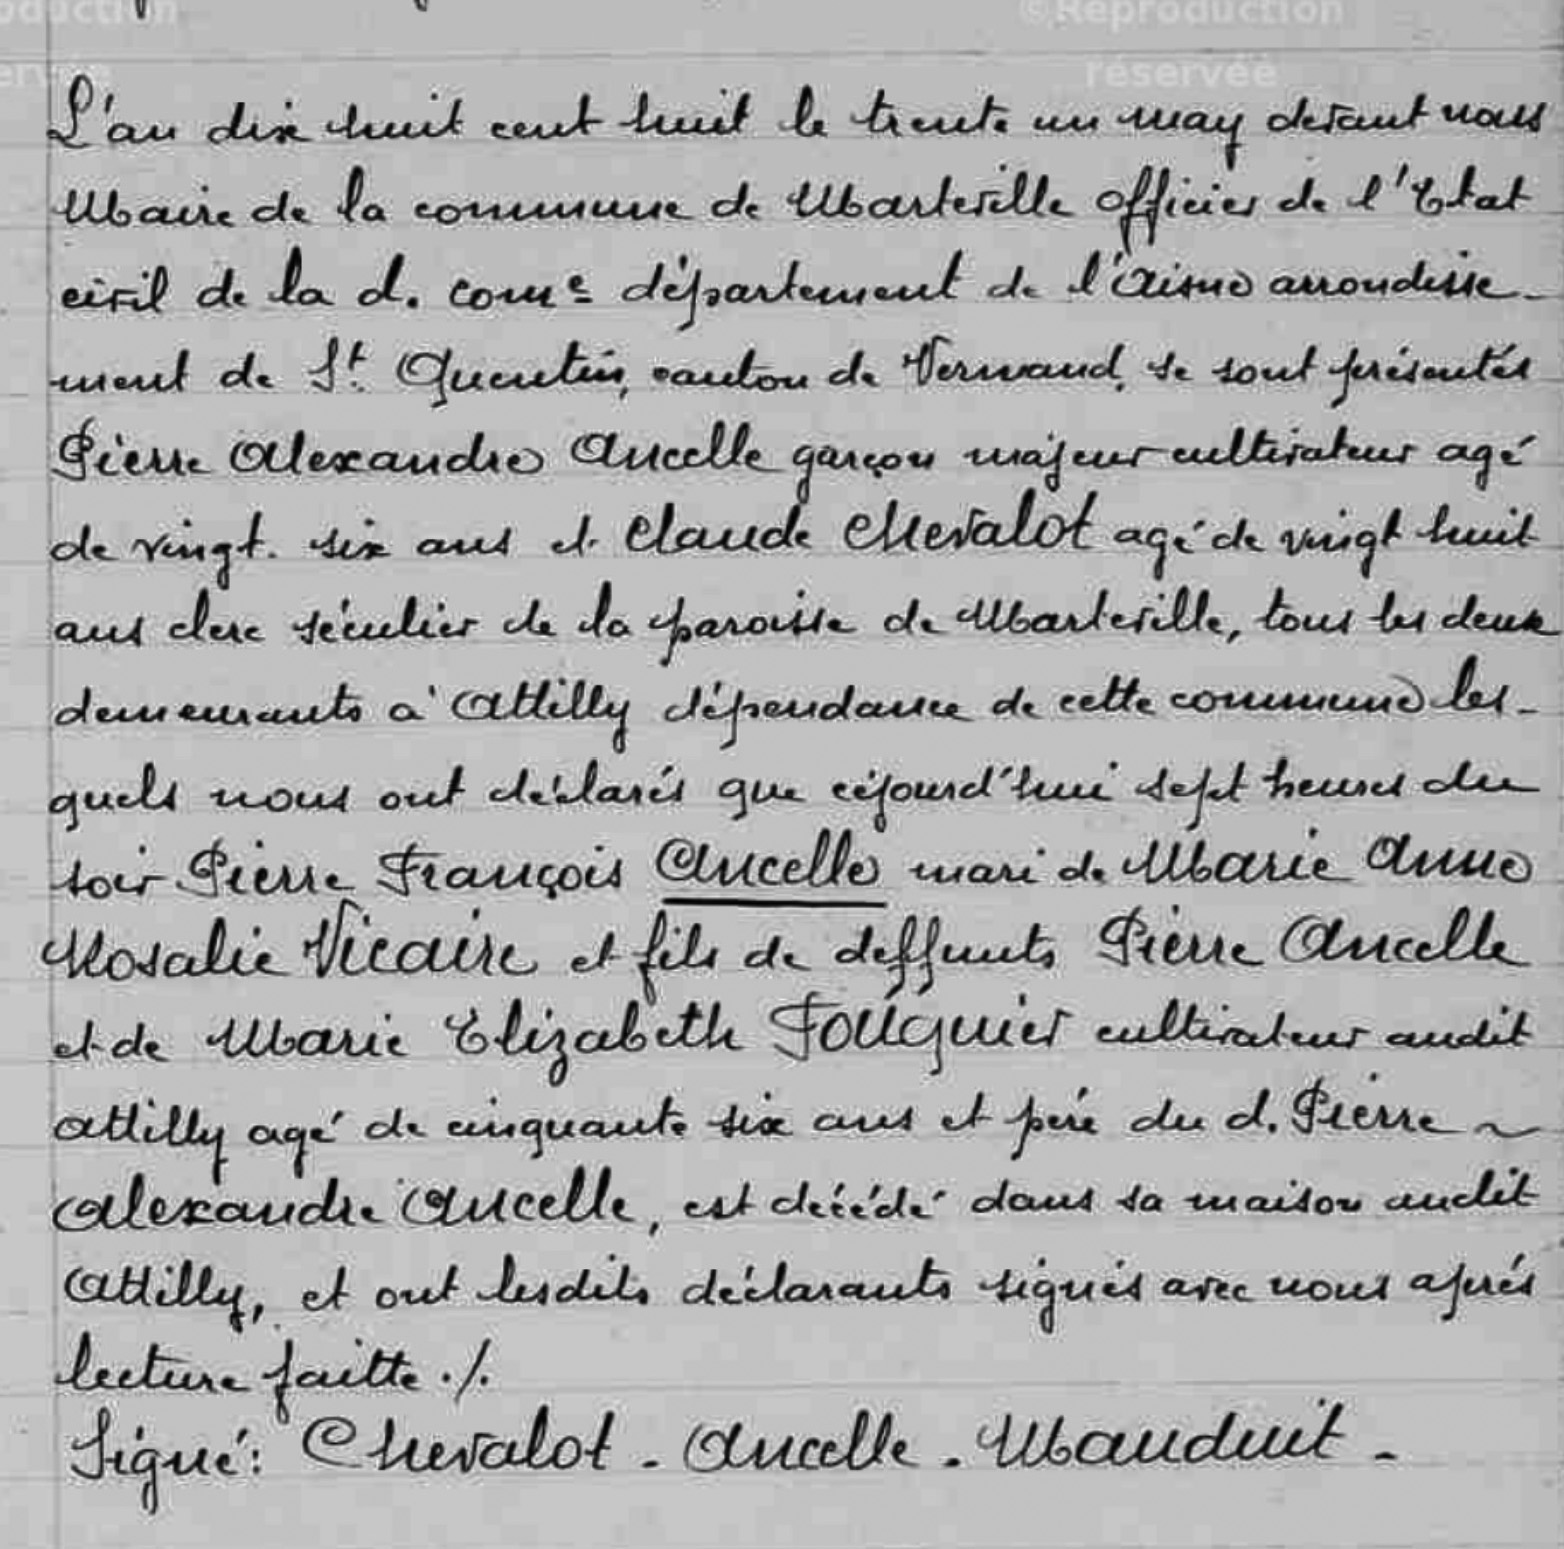 ©Reproduction
réservéè
L'an dix huit cent huit le trente un may devant nous
Maire de la commune de Marteville officier de l'Etat
civil de la d. come département de l'Aisne arrondisse-
ment de St. Quentin, canton de Vermand, se sont présentés
Pierre Alexandre Ancelle garçon majeur cultivateur agé
de vingt six ans et Claude Chevalot agé de vingt huit
ans clerc séculier de la paroisse de Marteville, tous les deux
demeurants à Attilly dépendance de cette commune les-
quels nous ont déclarés que cejourd'hui sept heures du
soir Pierre François Ancelle mari de Marie Anne
Rosalie Vicaire et fils de deffunts Pierre Ancelle
et de Marie Elizabeth Fouquier cultivateur audit
Attilly agé de cinquante six ans et père du d. Pierre ~
Alexandre Ancelle, est décédé dans sa maison audit
Attilly, et ont lesdits déclarants signés avec nous après
lecture faitte ./.
Signé: Chevalot - Ancelle - Mauduit -